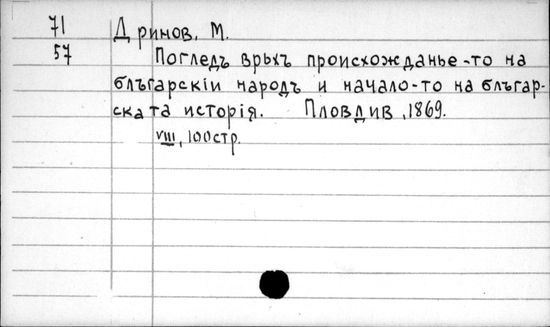 71 Дриновъ, М.
57 Погледъ врьхъ происхожданье-то на
блъгарскіи народъ и начало-то на блъгар-
ската исторія. Пловдив, 1869.
VIII, 100стр.